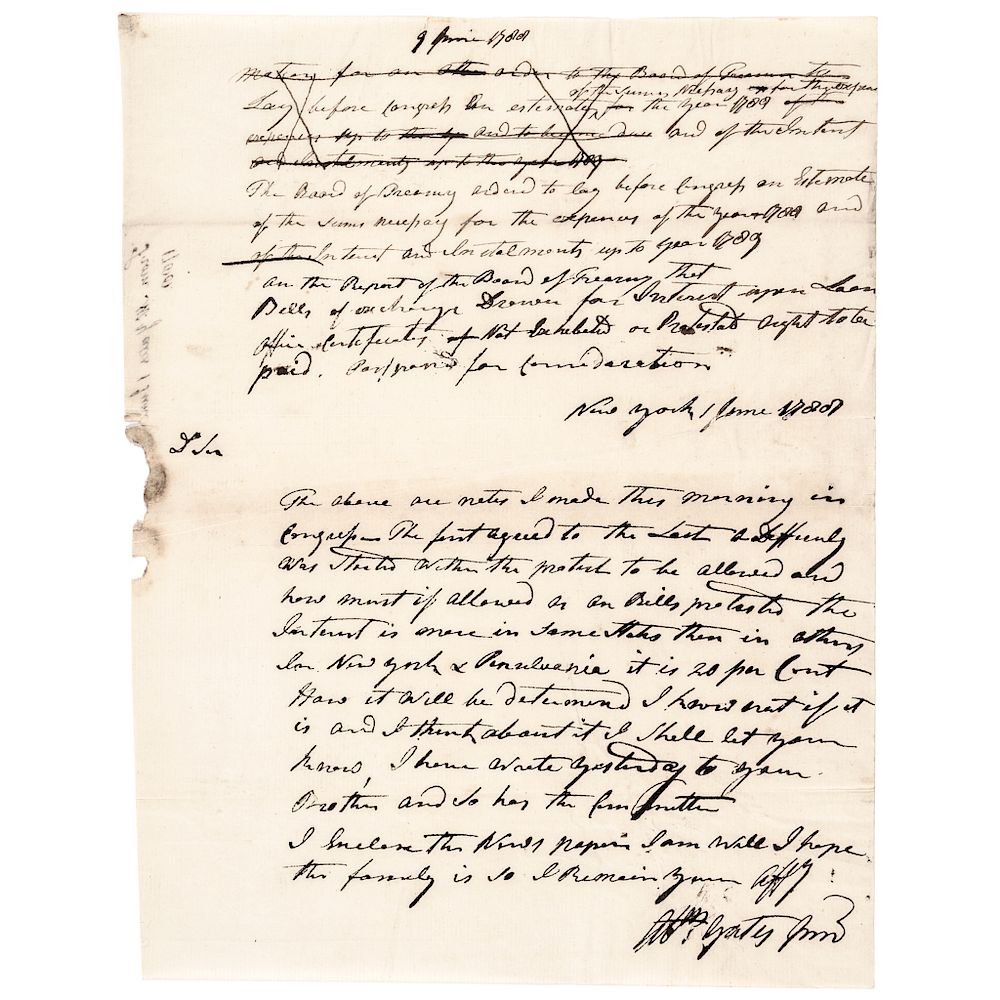 9 June 1788
Motion for an order to the Board of Treasury to
of the Sums Necessary for the expen
Lay before Congress an estemate for the year 1788 of the
expences up to the and to become due and of the Interest
and Instalments up to the year 1789
The Board of Treasury orderd to lay before Congress an Estemate
of the sums necessary for the expences of the year 1788 and
of the Interest and Instalments up to year 1789
on the Report of the Board of Treasury that
Bills of exchange Drawn for Interest upon Loan
office Certificates of Not Exhebeted or Protested ought to be
paid. Postponed for Consideration
New York 1 June 1788
Dr Sir
The above are notes I made this morning in
Congress The first agreed to the Last a Difficulty
Was Started Within the protest to be allowed and
how must if allowed as on Bills protested the
Interest is more in Some States then in others
In New York & Pensilvania it is 20 per Cent
How it will be determend I know not if it
is and I think about it I Shall let your
Know, I have Wrote Yesterday to your
Brother and So has the Committee
I Enclose the News papers I am Well I hope
the family is so I Remain Your Affy
Abm. Yates Junr
From Ab Yates 1 June